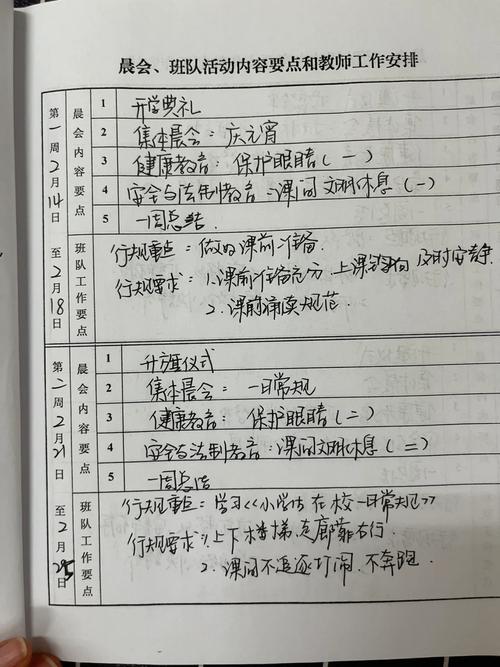 晨会、班队活动内容要点和教师工作安排
第一周2月14日至2月18日
晨会内容要点
1 开学典礼
2 集体晨会：庆元宵
3 健康教育：保护眼睛（一）
4 安全与法制教育：课间文明休息（一）
5 一周总结
班队工作要点
行规重点：做好课前准备
行规要求：1.课前准备充分，上课铃响及时安静
2.课前诵读规范.
第二周2月21日至2月25日
晨会内容要点
1 升旗仪式
2 集体晨会：一日常规
3 健康教育：保护眼睛（二）
4 安全与法制教育：课间文明休息（二）
5 一周总结
班队工作要点
行规重点：学习《小学生在校一日常规》
行规要求：1.上下楼梯，走廊靠右行.
2.课间不追逐打闹，不奔跑.